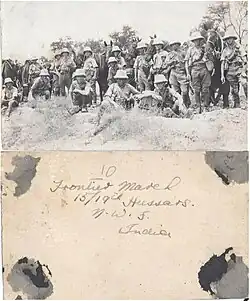 10
Frontier March
15/19th Hussars.
N.W.F.
India